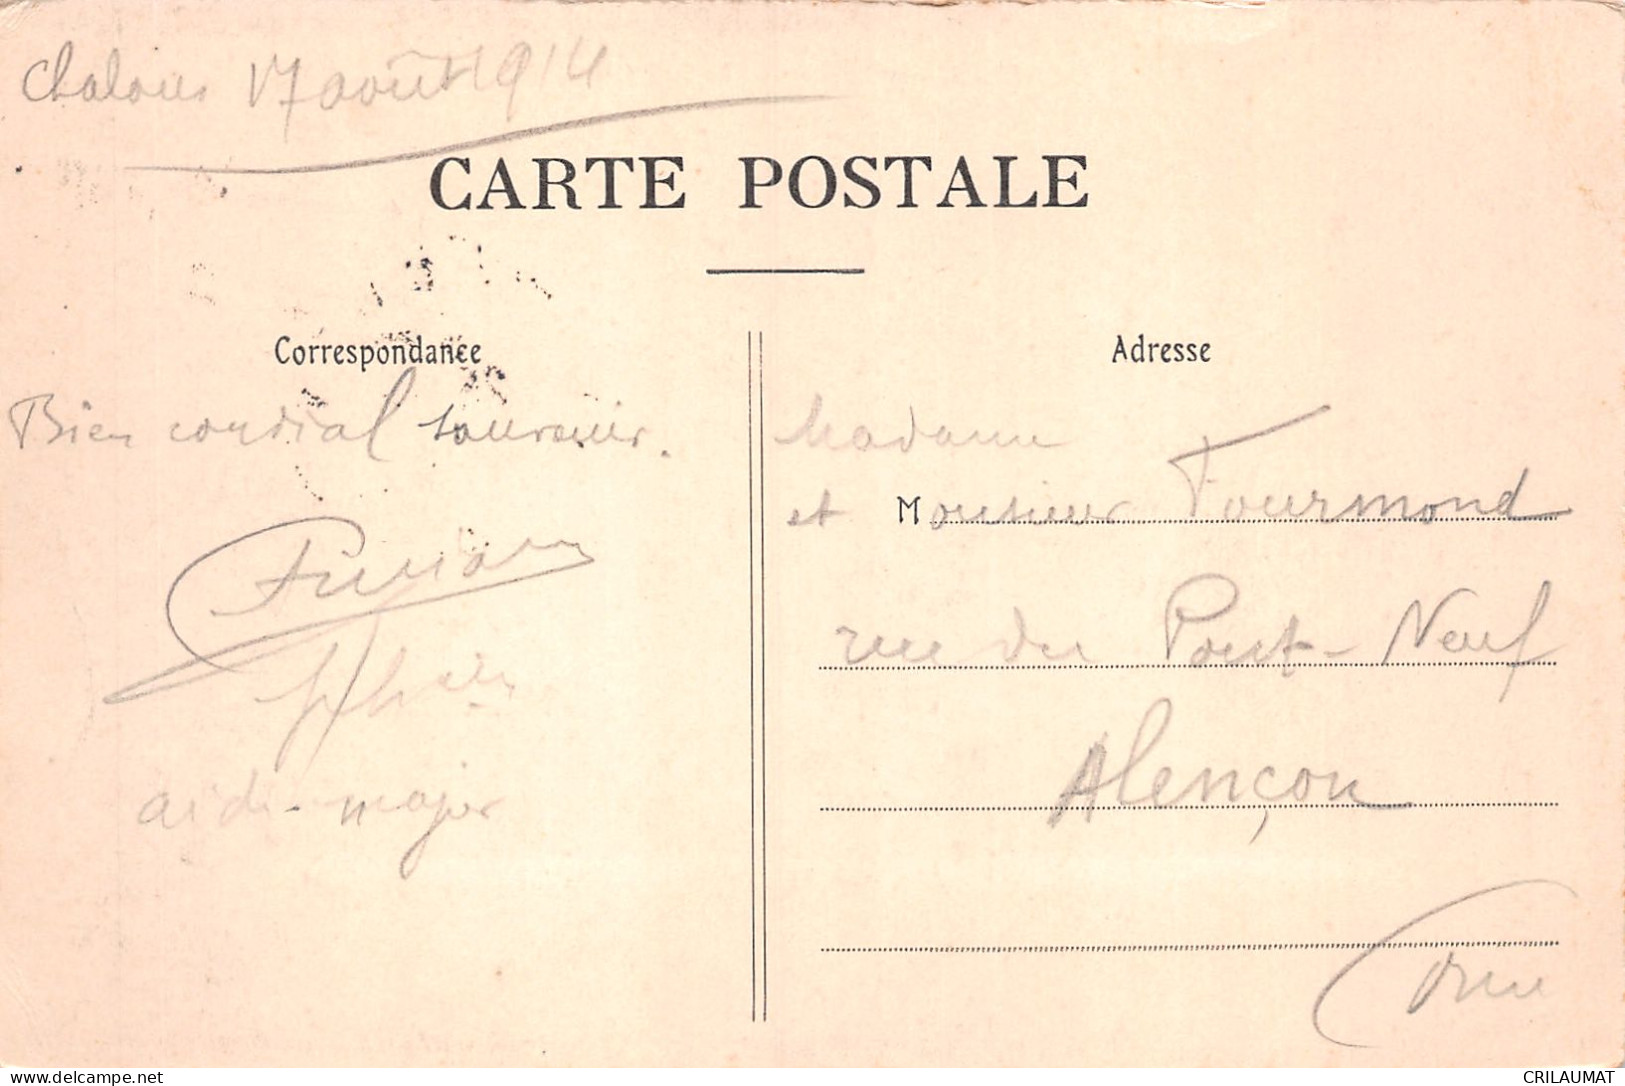 Chalons 17 août 1914
CARTE POSTALE
Correspondance
Bien cordial souvenir.
aide-major
Adresse
Madame
et Monsieur Fourmond
rue du Pont-Neuf
Alençon
Orne
CRILAUMAT